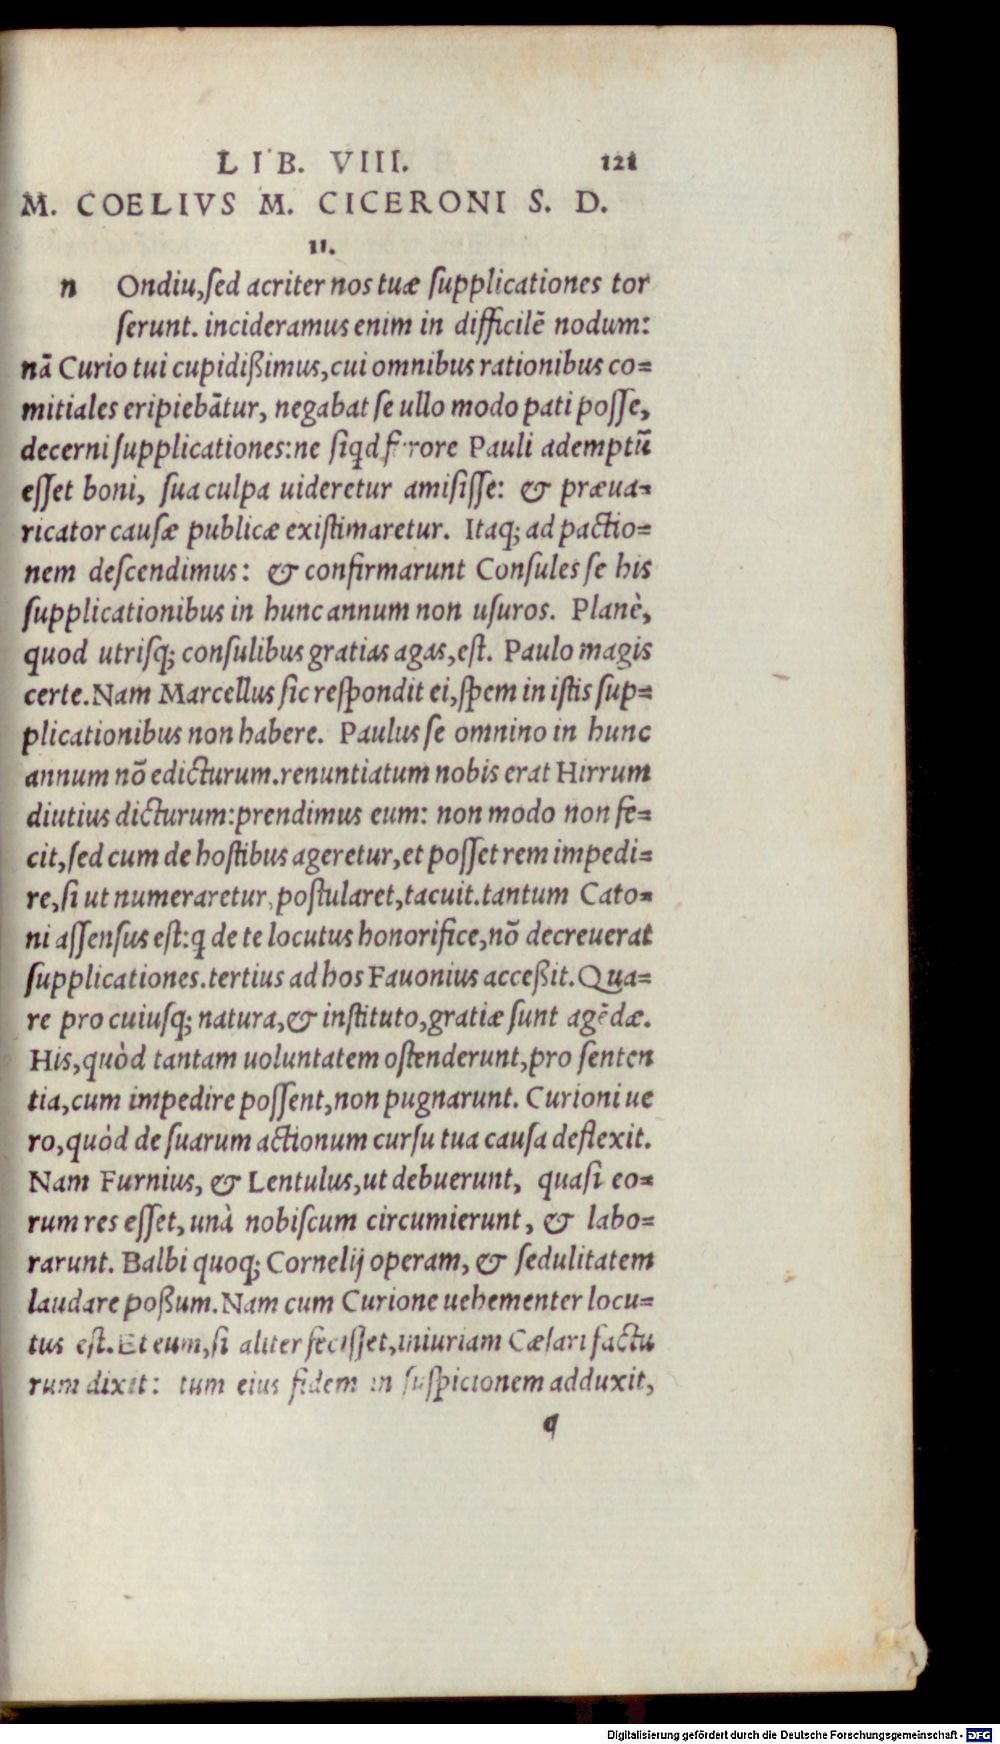 LIB. VIII. 121
M. COELIVS M. CICERONI S. D.
II.
n Ondiu,ſed acriter nos tuæ ſupplicationes tor
ſerunt. incideramus enim in difficilē nodum:
nā Curio tui cupidißimus,cui omnibus rationibus co=
mitiales eripiebātur, negabat ſe ullo modo pati poſſe,
decerni ſupplicationes:ne ſiqd furore Pauli ademptū
eſſet boni, ſua culpa uideretur amiſiſſe: & præua=
ricator cauſæ publicæ exiſtimaretur. Itaq; ad pactio=
nem deſcendimus: & confirmarunt Conſules ſe his
ſupplicationibus in hunc annum non uſuros. Planè,
quod utriſq; conſulibus gratias agas,eſt. Paulo magis
certe.Nam Marcellus ſic reſpondit ei,ſpem in iſtis ſup=
plicationibus non habere. Paulus ſe omnino in hunc
annum nō edicturum.renuntiatum nobis erat Hirrum
diutius dicturum:prendimus eum: non modo non fe=
cit,ſed cum de hoſtibus ageretur,et poſſet rem impedi=
re,ſi ut numeraretur,poſtularet,tacuit.tantum Cato=
ni aſſenſus eſt:q de te locutus honorifice,nō decreuerat
ſupplicationes.tertius ad hos Fauonius acceßit.Qua=
re pro cuiuſq; natura,& inſtituto,gratiæ ſunt agēdæ.
His,quòd tantam uoluntatem oſtenderunt,pro ſenten
tia,cum impedire poſſent,non pugnarunt. Curioni ue
ro,quòd de ſuarum actionum curſu tua cauſa deflexit.
Nam Furnius, & Lentulus,ut debuerunt, quaſi eo=
rum res eſſet,unà nobiſcum circumierunt, & labo=
rarunt. Balbi quoq; Cornelij operam, & ſedulitatem
laudare poßum.Nam cum Curione uehementer locu=
tus eſt.Et eum,ſi aliter feciſſet,iniuriam Cæſari factu
rum dixit: tum eius fidem in ſuſpicionem adduxit,
q
Digitalisierung gefördert durch die Deutsche Forschungsgemeinschaft - DFG